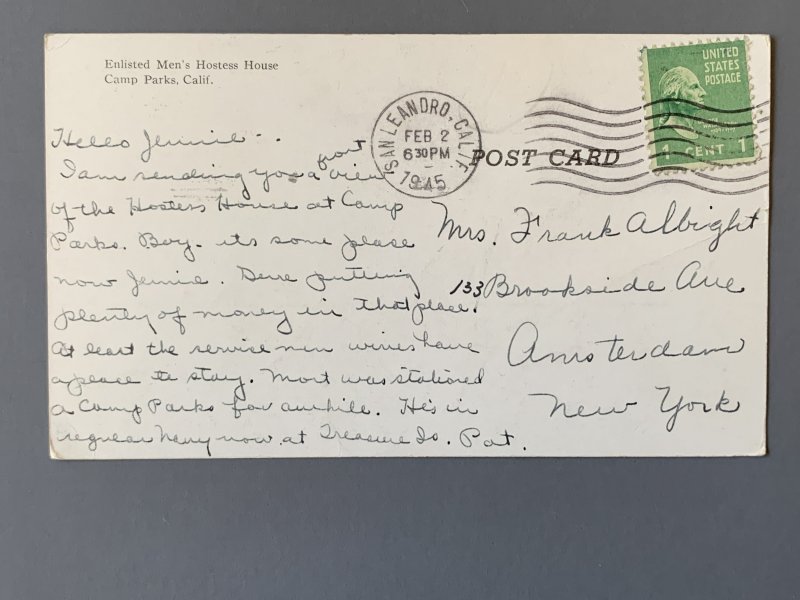 Enlisted Men's Hostess House
Camp Parks, Calif.
SAN LEANDRO, CALIF.
FEB 2
6 30 PM
1945
UNITED
STATES
POSTAGE
1 CENT 1
POST CARD
Hello Jennie..
front
I am sending you a view
of the Hostess House at Camp
Parks. Boy. its some please
now Jennie. Sure putting
plenty of money in that place.
At least the service men wives have
a place to stay. Mort was stationed
a Camp Parks for awhile. He's in
regular Navy now at Treasure Is. Pat.
Mrs. Frank Albight
133 Brookside Ave
Amsterdam
New York